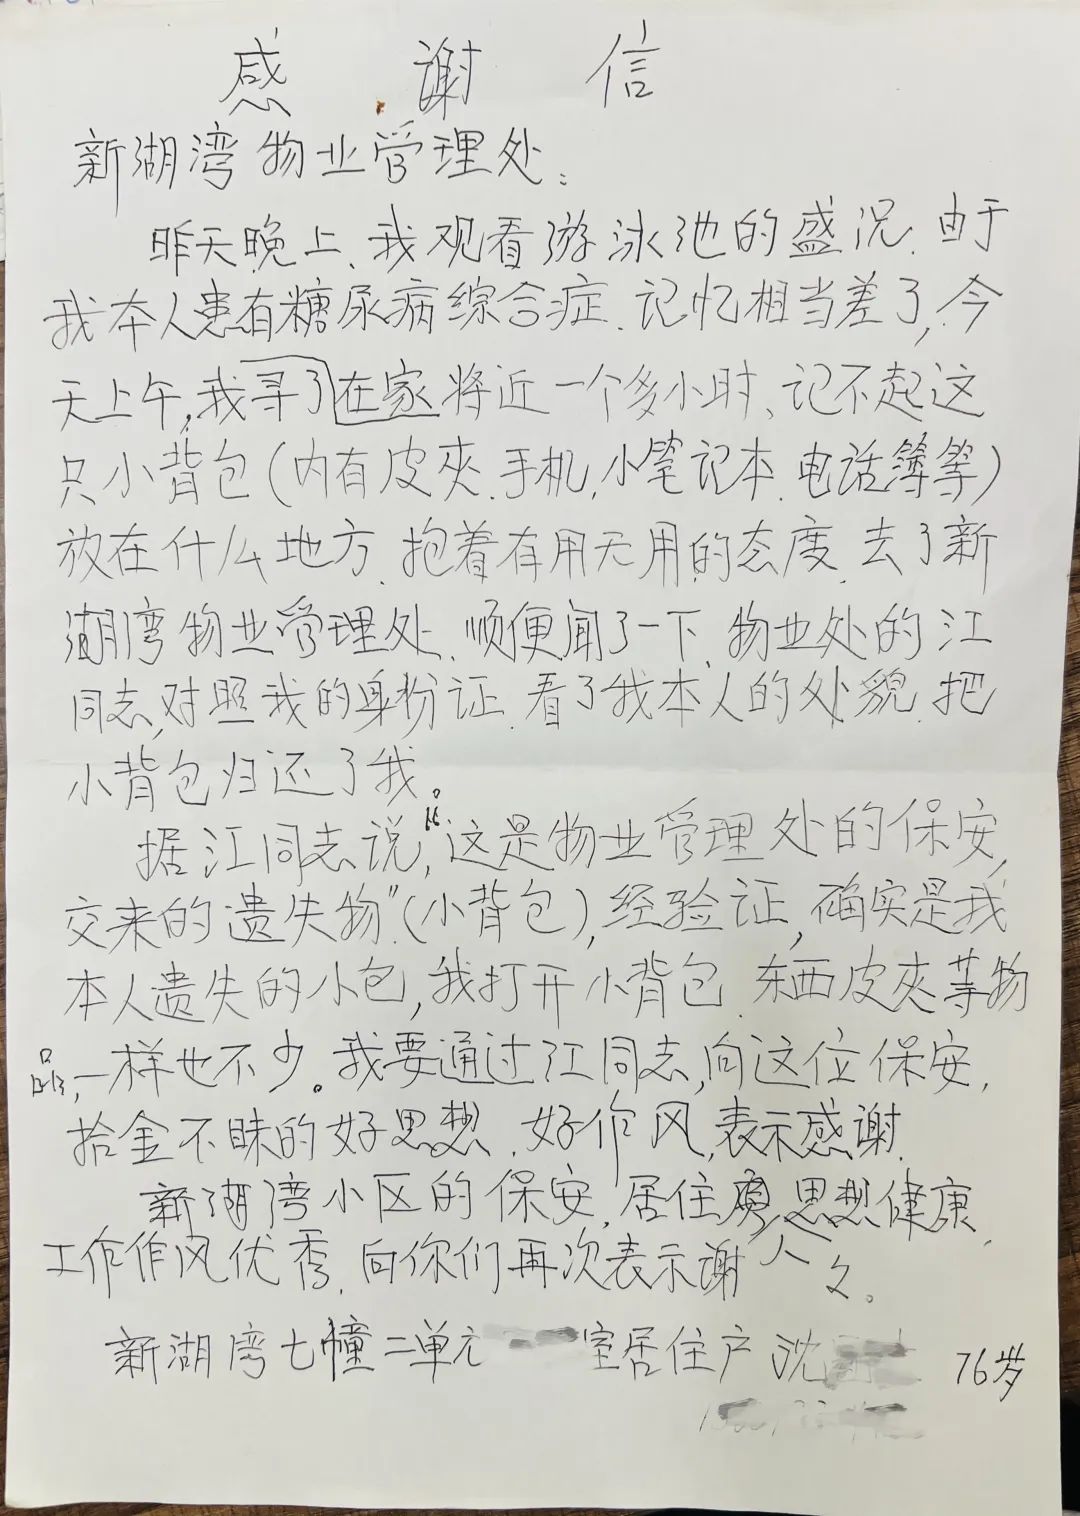 感谢信
新湖湾物业管理处:
昨天晚上、我观看游泳池的盛况.由于
我本人患有糖尿病综合症.记忆相当差了,今
天上午,我寻了在家将近一个多小时、记不起这
只小背包(内有皮夹.手机,小笔记本.电话簿等)
放在什么地方.抱着有用无用的态度.去了新
湖湾物业管理处.顺便闻了一下.物业处的江
同志,对照我的身份证.看了我本人的处貌.把
小背包归还了我。
据江同志说,“这是物业管理处的保安,
交来的遗失物”(小背包),经验证,确实是我
本人遗失的小包,我打开小背包.东西皮夹等物
品,一样也不少。我要通过江同志,向这位保安,
拾金不昧的好思想.好作风,表示感谢.
新湖湾小区的保安.居住人思想健康.
工作作风优秀.向你们再次表示谢々。
新湖湾七幢二单元 室居住户 沈 76岁